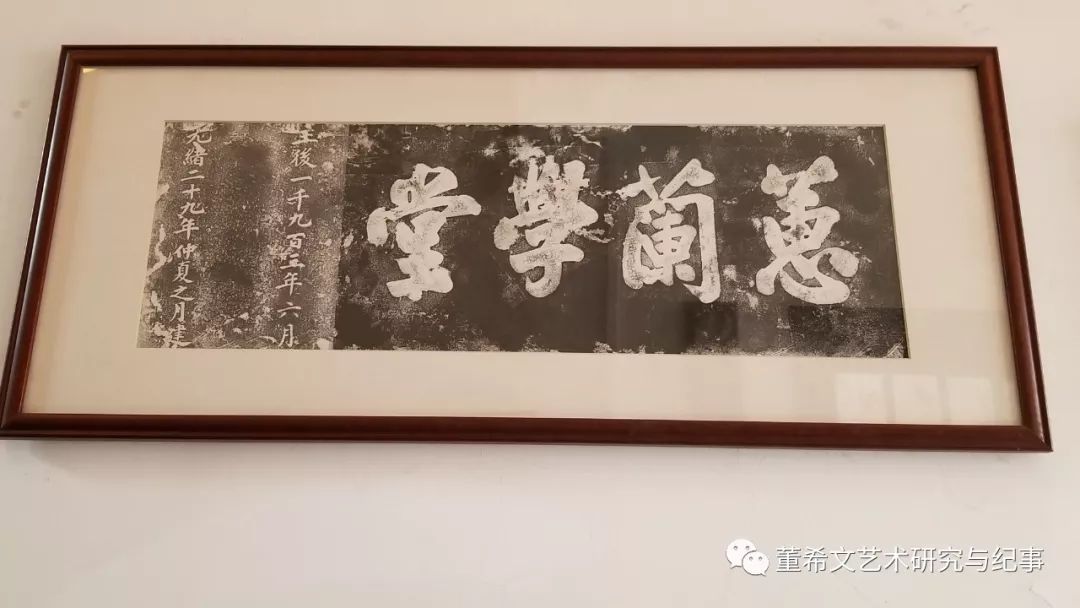 蕙蘭學堂
主後一千九百三年六月
光緒二十九年仲夏之月建
董希文艺术研究与纪事